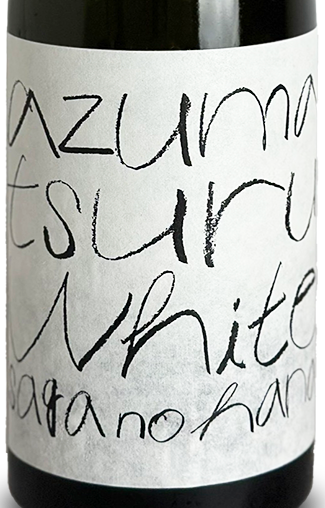 azuma
tsuru
White
saga no hana